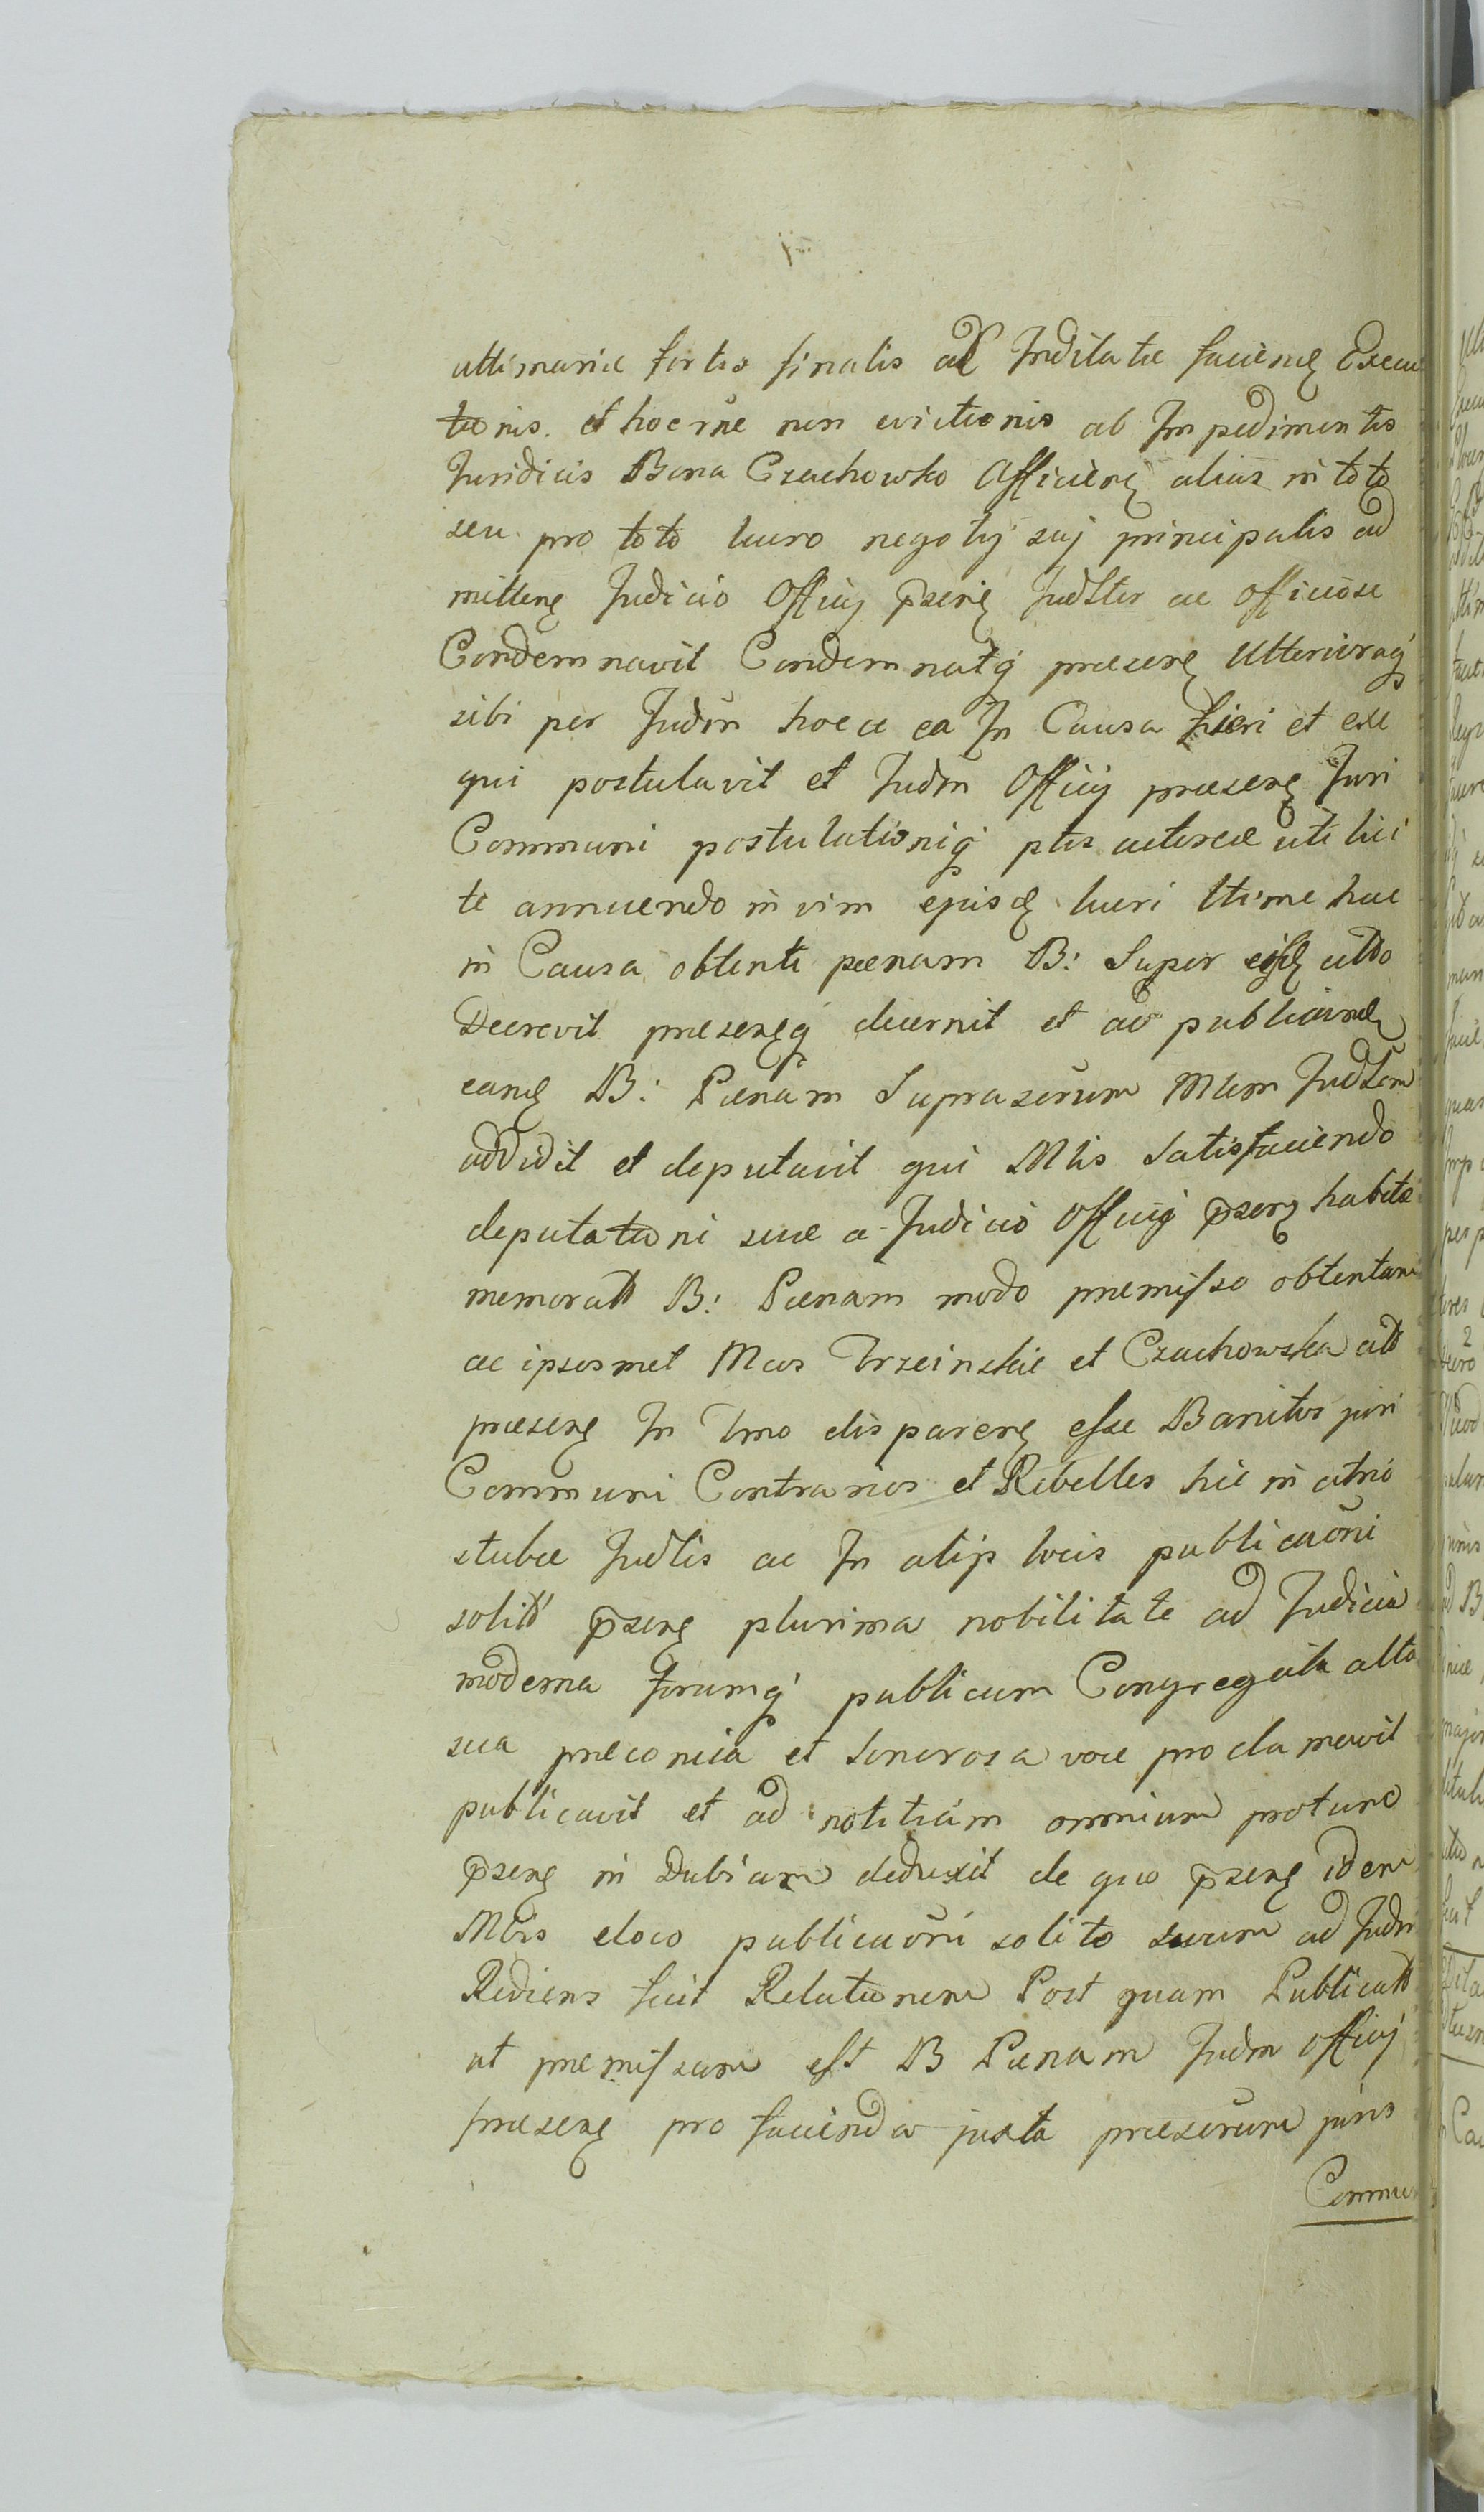 ultimariæ fortis finalis ad Inditatæ faciend Execu
tionis. et hocrne non evictionis ab Impedimentis
Juridicis Bona Czachowsko Afficien alias in toto
seu pro toto lucro negotij suj principalis ad
mitten Judicio Officij pzen Judlter ac Officiose
Condemnavit Condemnatq præsen Ulteriusq
sibi per Judm hocce ea In Causa fieri et exe
qui postulavit et Judm Officij præsen Juri
Communi postulationiq ptis actoreæ uti lici
te annuendo in vim episd lucri ltime hac
in Causa obtenti pænam B: Super eisd citto
Decrevit præsenq decernit et ad publicand
eand B: Pænam Suprascrum Mlem Judlem
addidit et deputavit qui Mlis Satisfaciendo
deputationi suæ a Judicio Officij pzen habitæ
memoratt B: Pænam modo præmisso obtentam
ac ipsosmet Mcos Trzcinskie et Czachowska citt
præsen In Tmo disparen esse Banitos juri
Communi Contrarios et Rebelles hic in atrio
stubæ Judlis ac In alijs locis publicaoni
solitt pzen plurima nobilitate ad Judicia
moderna forumq publicum Congregata alta
sua præconica et Sonorosa voce proclamavit
publicavit et ad notitiam omnium protunc
pzen in Dubiam deduxit de quo pzen idem
Mlis eloco publicaoni solito suum ad Judm
Rediens fecit Relationem Post quam Publicatt
ut præmissum est B Pænam Judm Officij
præsen pro facienda juxta præscrum juris
Commu